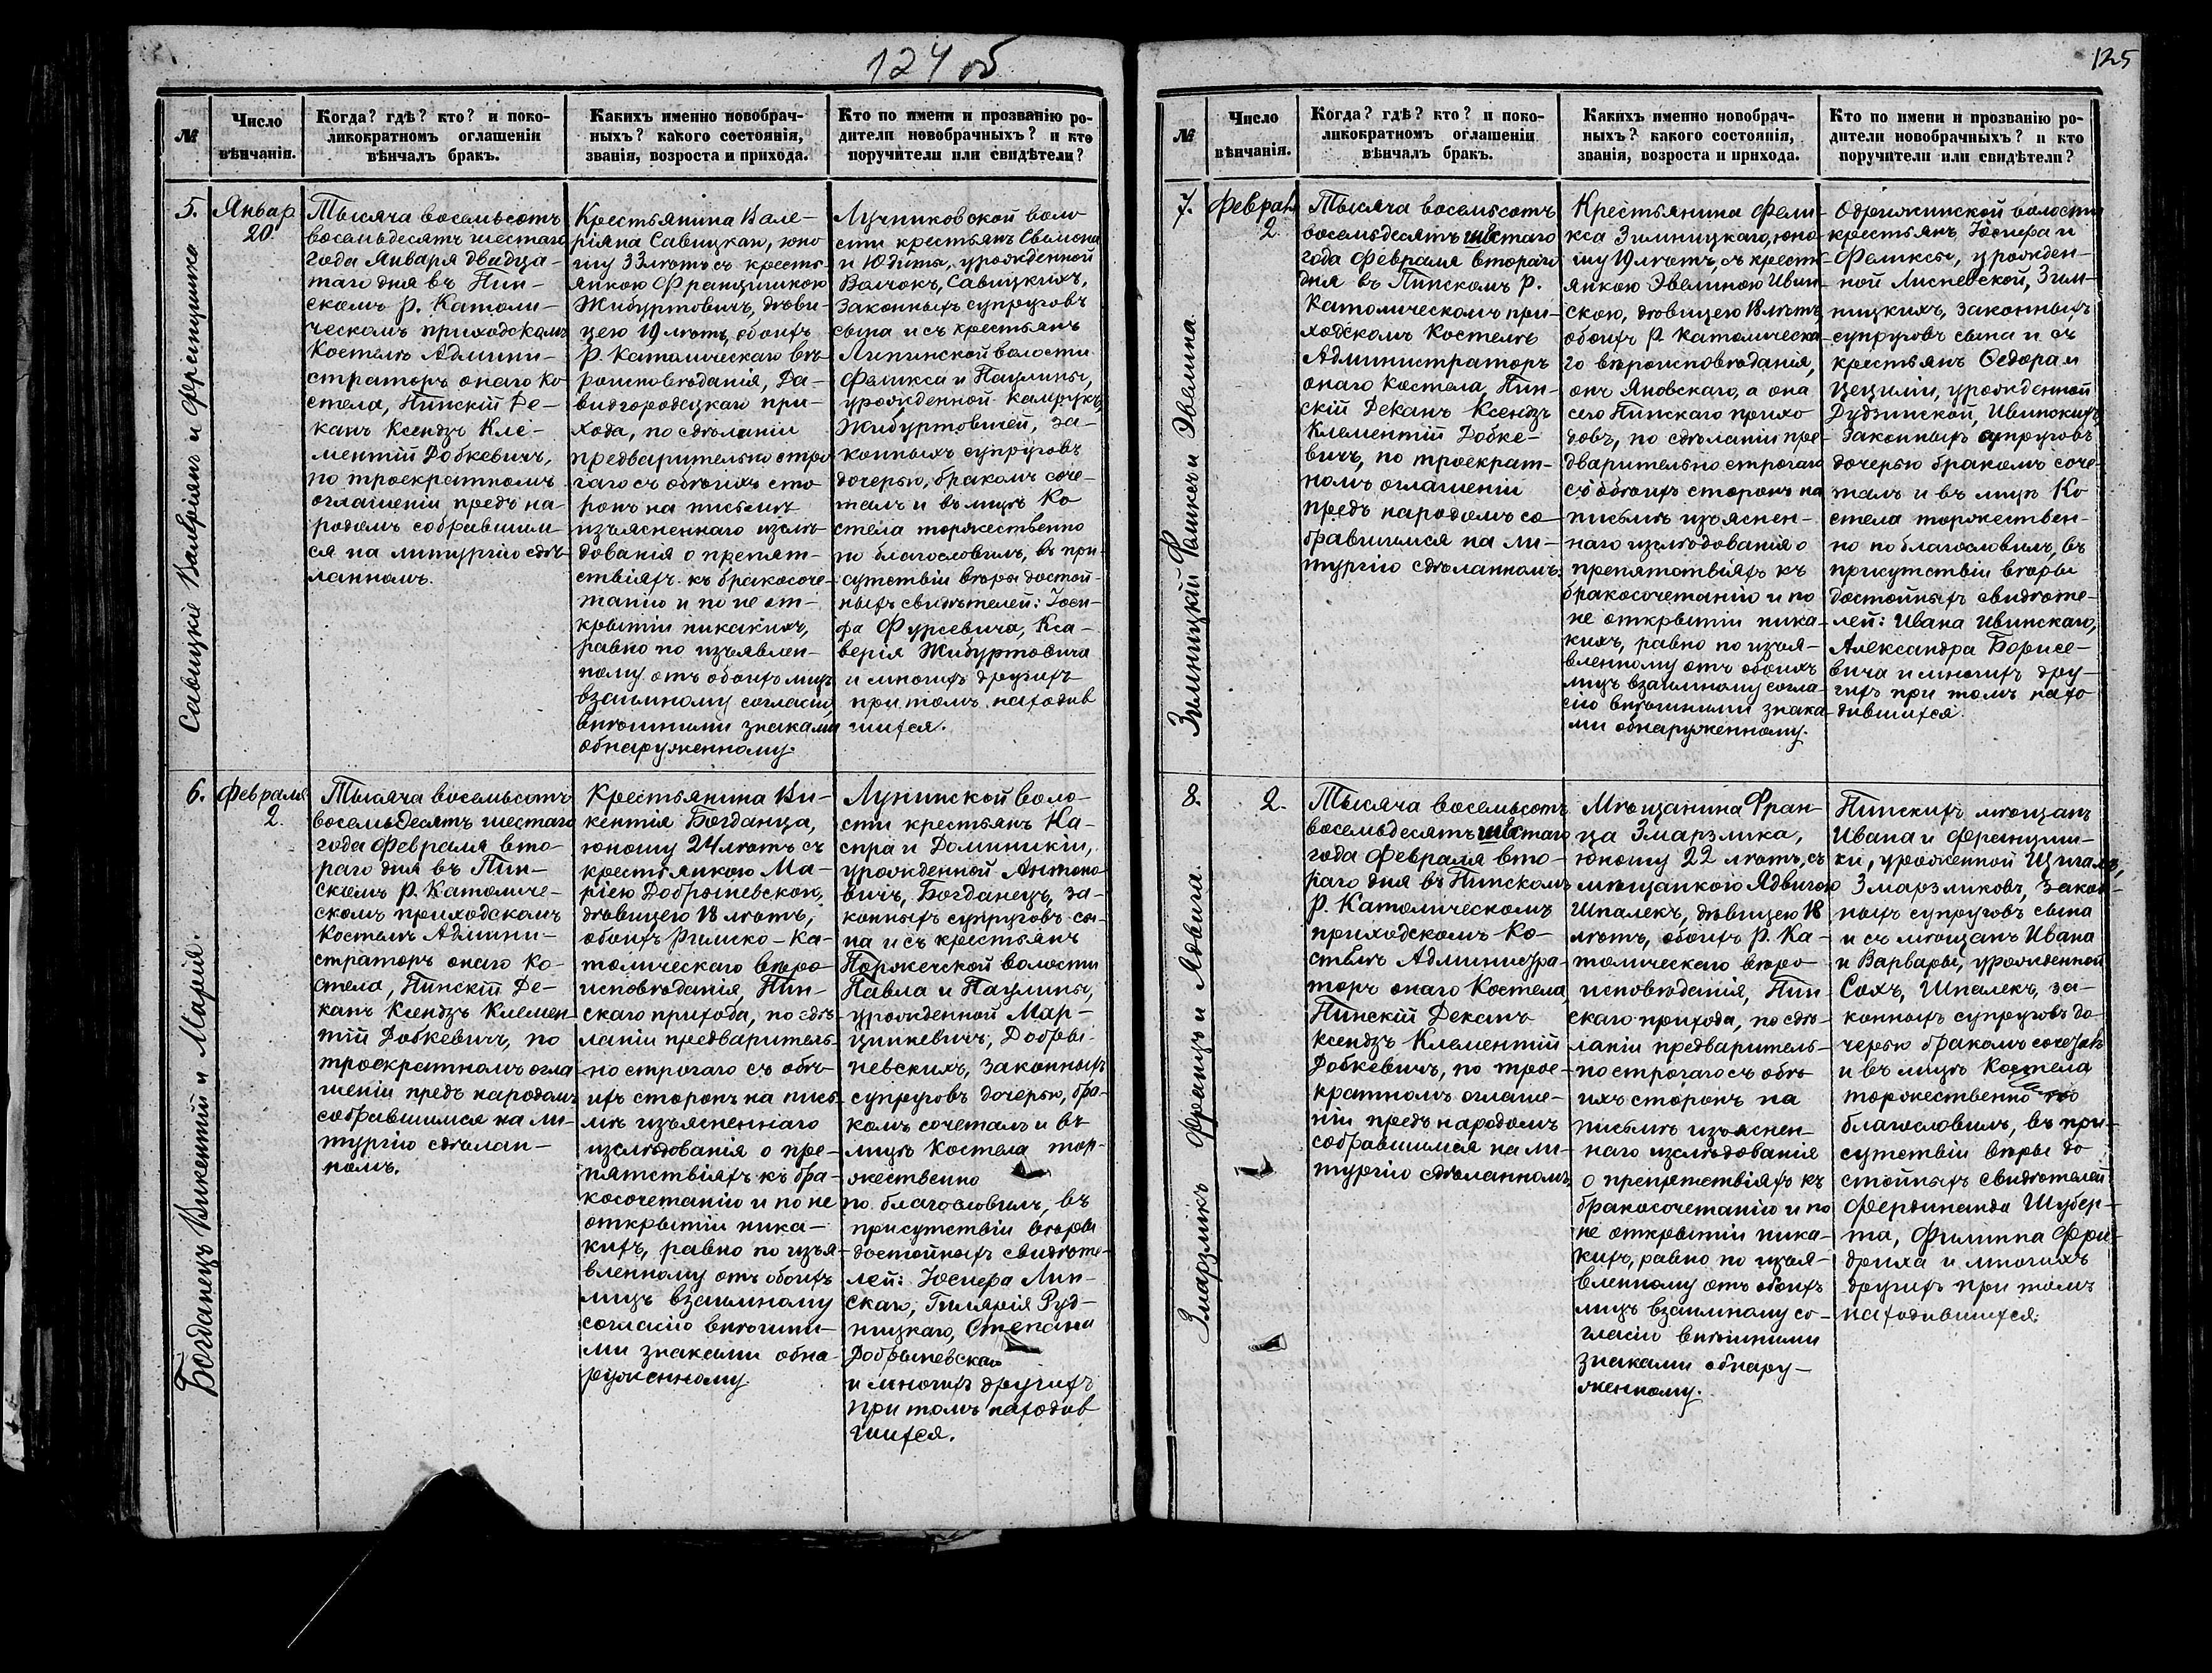 124 об
№
Число
вѣнчанія.
Когда? гдѣ? кто? и поко-
ликократномъ оглашеніи
вѣнчалъ бракъ.
Какихъ именно новобрач-
ныхъ? какого состоянія,
званія, возроста и прихода.
Кто по имени и прозванію ро-
дители новобрачныхъ? и кто
поручители или свидѣтели?
5.
Савицкіе Валеріянъ и Францишка
Январ
20.
Тысяча восемьсотъ
восемьдесятъ шестаго
года Января двадца-
таго дня въ Пин-
скомъ Р. Католи-
ческомъ приходскомъ
Костелѣ Админи-
страторъ онаго Ко
стела, Пинскій Де-
канъ Ксендзъ Кле-
ментій Добкевичъ,
по троекратномъ
оглашеніи предъ на-
родомъ собравшим-
ся на литургію сдѣ-
ланномъ.
Крестьянина Вале-
ріяна Савицкаго, юно
шу 33 лѣтъ съ кресть
янкою Францишкою
Жибуртовичъ, дѣви-
цею 19 лѣтъ, обоихъ
Р. Католическаго вѣ-
роисповѣданія, Да-
видгородецкаго при-
хода, по сдѣланіи
предварительно стро
гаго съ обоихъ сто
ронъ на письмѣ
изъясненнаго изслѣ-
дованія о препят-
ствіяхъ къ бракосоче-
танію и по не от-
крытіи никакихъ,
равно по изъявлен-
ному отъ обоихъ лицъ
взаимному согласію,
внѣшними знаками
обнаруженному.
Лучниковской воло
сти крестьянъ Симона
и Юдиты, урожденной
Волчокъ, Савицкихъ,
законныхъ супруговъ
сына и съ крестьянъ
Липинской волости
Феликса и Паулины,
урожденной Камрукъ,
Жибуртовичей, за-
конныхъ супруговъ
дочерью, бракомъ соче-
талъ и въ лицѣ Ко
стела торжественно
по благословилъ, въ при-
сутствіи вѣры достой-
ныхъ свидѣтелей: Іоси-
фа Фурсевича, Кса-
верія Жибуртовича
и многихъ другихъ
при томъ находив
шихся.
6.
Богданецъ Викентій и Марія.
Февраля
2.
Тысяча восемьсотъ
восемьдесятъ шестаго
года Февраля вто-
раго дня въ Пин-
скомъ Р. Католиче-
скомъ приходскомъ
Костелѣ Админи-
страторъ онаго Ко-
стела, Пинскій Де-
канъ Ксендзъ Клемен-
тій Добкевичъ, по
троекратномъ огла
шеніи предъ народомъ
собравшимся на ли-
тургію сдѣлан-
номъ.
Крестьянина Ви-
кентія Богданца,
юношу 24 лѣтъ съ
крестьянкою Ма-
ріею Добрыневскою,
дѣвицею 18 лѣтъ,
обоихъ Римско-Ка-
толическаго вѣро
исповѣданія, Пин-
скаго прихода, по сдѣ-
ланіи предваритель-
но строгаго съ обо-
ихъ сторонъ на пись
мѣ изъясненнаго
изслѣдованія о пре-
пятствіяхъ къ бра-
косочетанію и по не
открытіи ника-
кихъ, равно по изъя-
вленному отъ обоихъ
лицъ взаимному
согласію внѣшни-
ми знаками обна-
руженному.
Лунинской воло-
сти крестьянъ Ка-
спра и Доминикіи,
урожденной Антоно-
вичъ, Богданецъ, за-
конныхъ супруговъ сы-
на и съ крестьянъ
Поржечской волости
Павла и Паулины,
урожденной Мар-
цинкевичъ, Добры-
невскихъ, законныхъ
супруговъ дочерью, бра-
комъ сочеталъ и въ
лицѣ Костела тор-
жественно
по благословилъ, въ
присутствіи вѣры
достойныхъ свидѣте-
лей: Іосифа Лин-
скаго, Гиларія Руд-
ницкаго, Степана
Добрыневскаго
и многихъ другихъ
при томъ находив
шихся.
125
№
Число
вѣнчанія.
Когда? гдѣ? кто? и поко-
ликократномъ оглашеніи
вѣнчалъ бракъ.
Какихъ именно новобрач-
ныхъ? какого состоянія,
званія, возроста и прихода.
Кто по имени и прозванію ро-
дители новобрачныхъ? и кто
поручители или свидѣтели?
7.
Зимницкій Феликсъ и Эвелина.
Февраля
2.
Тысяча восемьсотъ
восемьдесятъ шестаго
года Февраля втораго
дня въ Пинскомъ Р.
Католическомъ при-
ходскомъ Костелѣ
Администраторъ
онаго Костела, Пин-
скій Деканъ Ксендзъ
Клементій Добке-
вичъ, по троекрат-
номъ оглашеніи
предъ народомъ со-
бравшимся на ли-
тургію сдѣланномъ.
Крестьянина Фели-
кса Зимницкаго, юно-
шу 19 лѣтъ, съ кресть-
янкою Эвелиною Ивин-
скою, дѣвицею 18 лѣтъ
обоихъ Р. Католическа-
го вѣроисповѣданія,
онъ Яновскаго, а она
сего Пинскаго прихо
довъ, по сдѣланіи пре-
дварительно строгаго
съ обоихъ сторонъ на
письмѣ изъяснен-
наго изслѣдованія о
препятствіяхъ къ
бракосочетанію и по
не открытіи ника-
кихъ, равно по изъя-
вленному отъ обоихъ
лицъ взаимному согла-
сію внѣшними знака-
ми обнаруженному.
Одрижинской волости
крестьянъ Іосифа и
Феликсы, урожден-
ной Лисневской, Зим-
ницкихъ, законныхъ
супруговъ сына и съ
крестьянъ Ѳедора и
Цециліи, урожденной
Дудзинской, Ивинскихъ,
законныхъ супруговъ
дочерью бракомъ соче-
талъ и въ лицѣ Ко
стела торжествен-
но по благословилъ, въ
присутствіи вѣры
достойныхъ свидѣте-
лей: Ивана Ивинскаго,
Александра Борисе-
вича и многихъ дру-
гихъ при томъ нахо
дившихся.
8.
Змарзликъ Францъ и Ядвига.
2.
Тысяча восемьсотъ
восемьдесятъ шестаго
года Февраля вто-
раго дня въ Пинскомъ
Р. Католическомъ
приходскомъ Ко-
стелѣ Администра-
торъ онаго Костела,
Пинскій Деканъ
Ксендзъ Клементій
Добкевичъ, по трое-
кратномъ оглаше-
ніи предъ народомъ
собравшимся на ли-
тургію сдѣланномъ.
Мѣщанина Фран-
ца Змарзлика,
юношу 22 лѣтъ, съ
мѣщанкою Ядвигою
Шпалекъ, дѣвицею 18
лѣтъ, обоихъ Р. Ка-
толическаго вѣро
исповѣданія, Пин
скаго прихода, по сдѣ-
ланіи предваритель-
но строгаго съ обо
ихъ сторонъ на
письмѣ изъяснен
наго изслѣдованія
о препятствіяхъ къ
бракосочетанію и по
не открытіи ника-
кихъ, равно по изъя-
вленному отъ обоихъ
лицъ взаимному со-
гласію внѣшними
знаками обнару-
женному.
Пинскихъ мѣщанъ
Ивана и Францишки-
ки, урожденной
Змарзликовъ, закон-
ныхъ супруговъ сына
и съ мѣщанъ Ивана
и Варвары, урожденной
Сохъ, Шпалекъ, за-
конныхъ супруговъ до
черью бракомъ сочеталъ
и въ лицѣ Костела
торжественно по
благословилъ, въ при-
сутствіи вѣры до
стойныхъ свидѣтелей
Фердинанда Шубер-
та, Филиппа Фри-
дриха и многихъ
другихъ при томъ
находившихся.